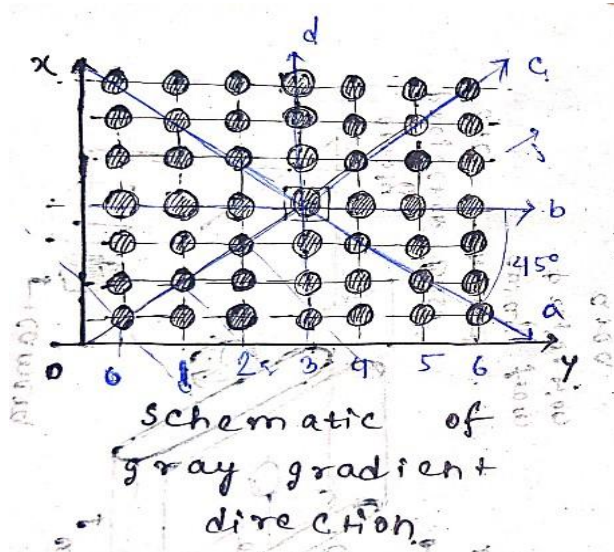 d
x
c
b
45°
a
0
0 1 2 3 4 5 6
y
schematic of
gray gradient
direction